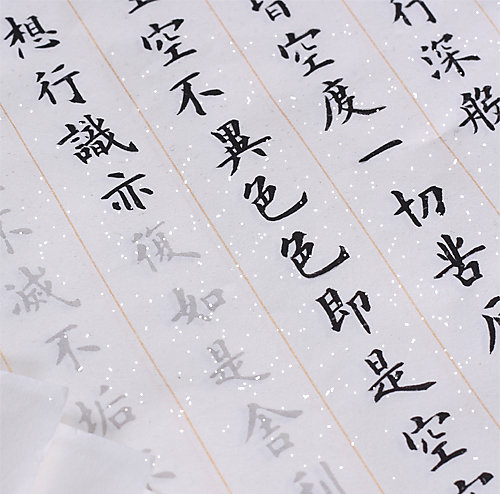 行深般
皆空度一切苦厄
空不異色色即是空
想行識亦復如是舍利
不滅不垢不